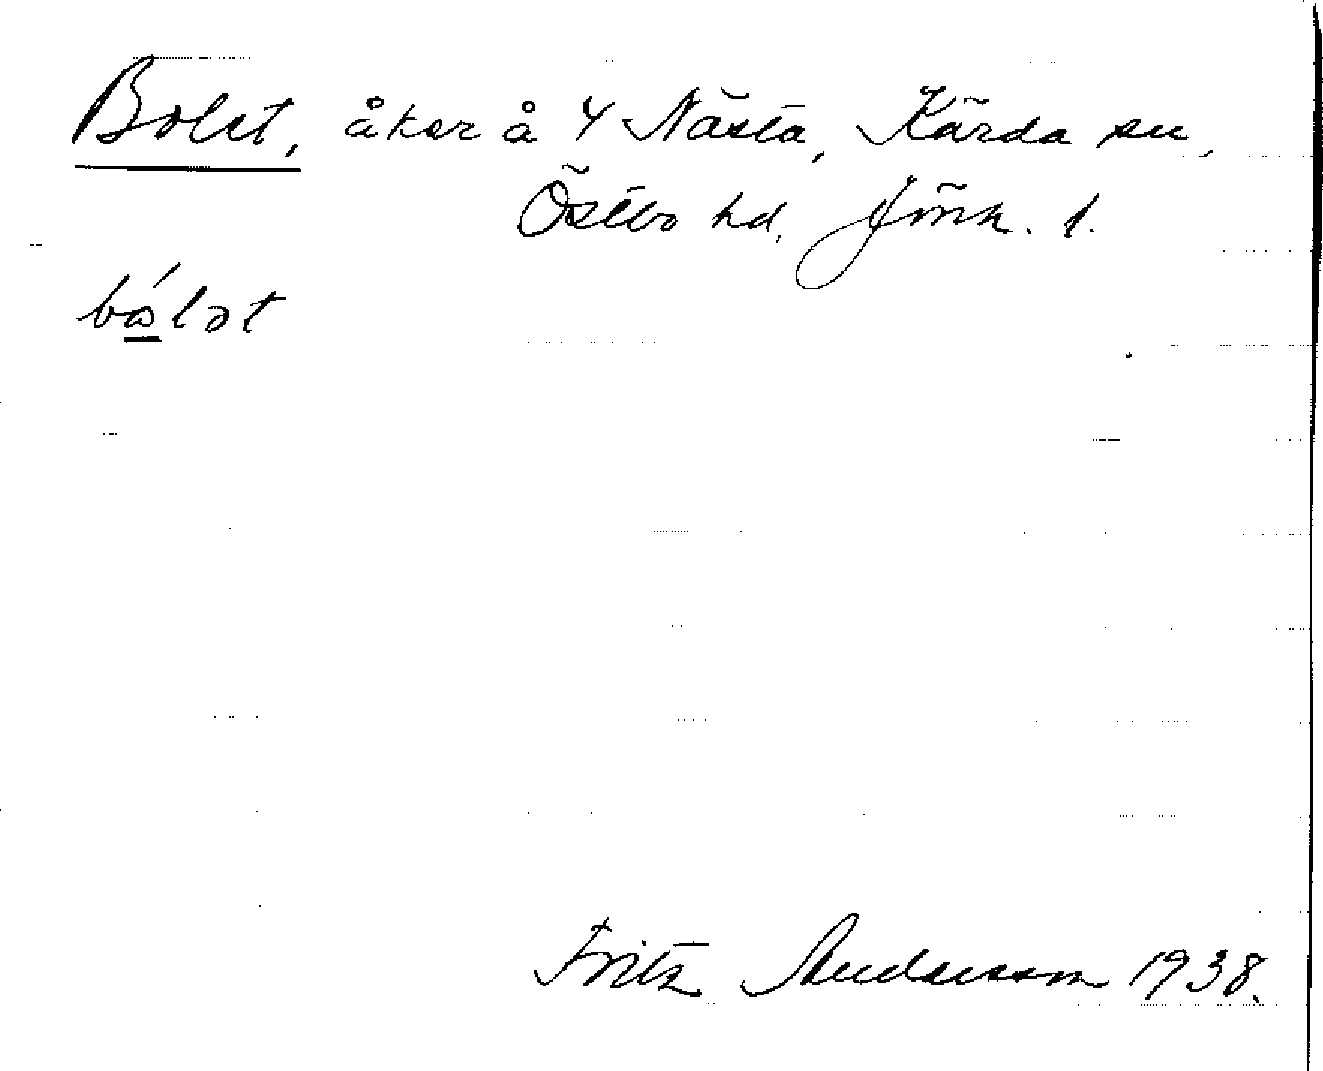 Bolet, åker å 4 Nästa, Kärda sn,
Östbo hd, Jönk. l.
bólət
Fritz Andersson 1938.